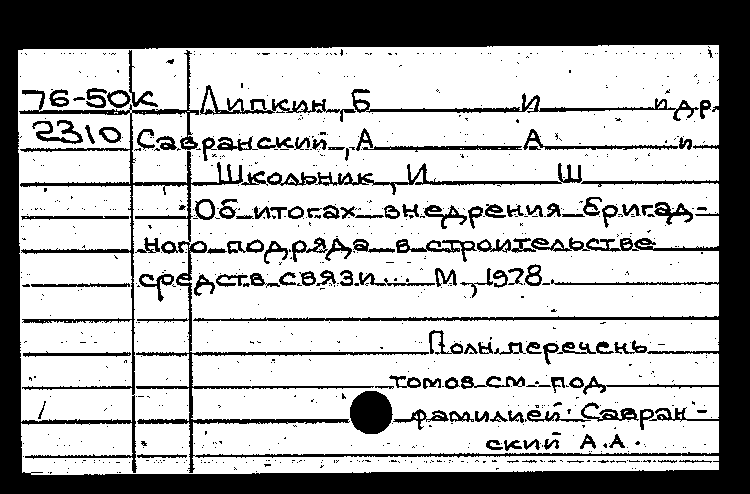 76-50К Липкин, Б И и др.
2310 Савранский, А А и
Школьник, И Ш
Об итогах внедрения бригад-
ного подряда в строительстве
средств связи... М., 1978.
Полн. перечень
томов см. под
фамилией: Савран-
ский А.А.